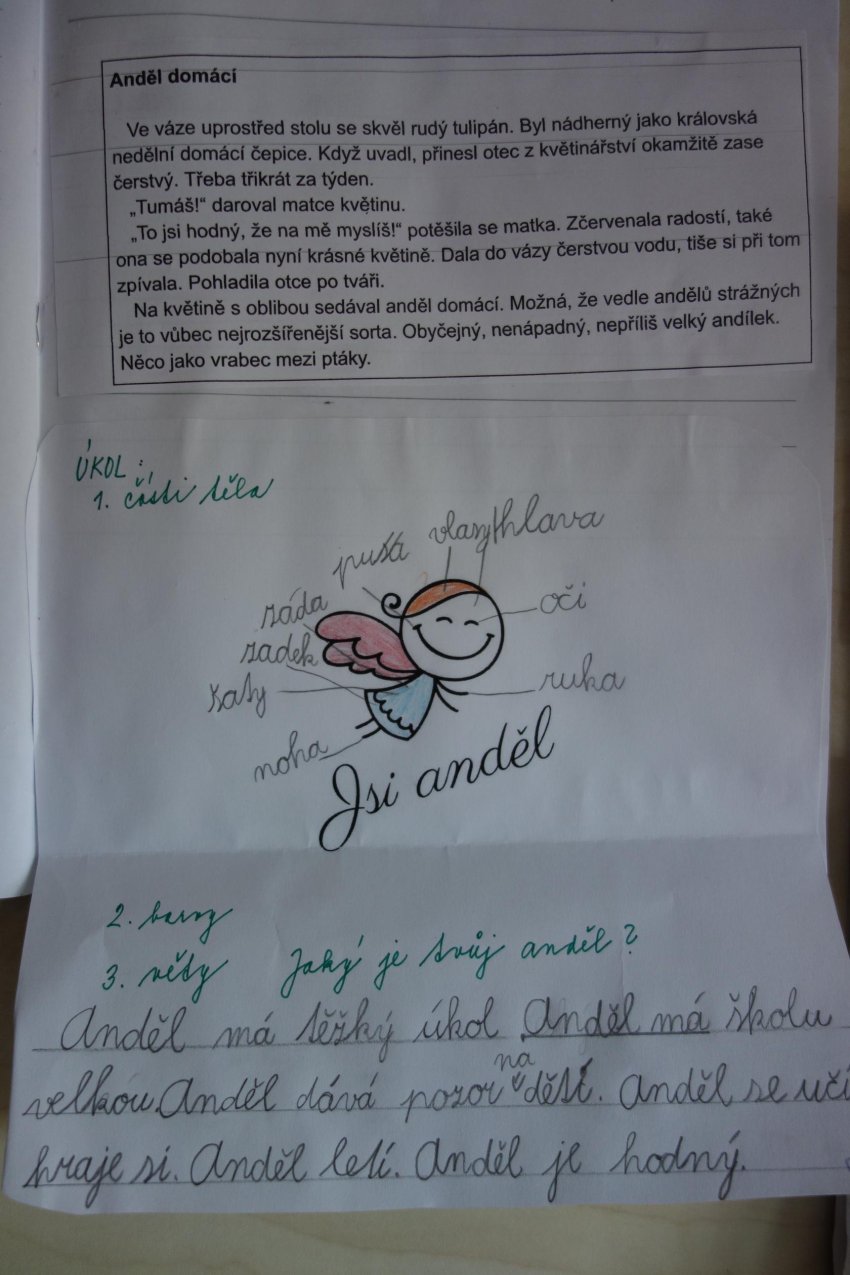 Anděl domácí
Ve váze uprostřed stolu se skvěl rudý tulipán. Byl nádherný jako královská
nedělní domácí čepice. Když uvadl, přinesl otec z květinářství okamžitě zase
čerstvý. Třeba třikrát za týden.
„Tumáš!“ daroval matce květinu.
„To jsi hodný, že na mě myslíš!“ potěšila se matka. Zčervenala radostí, také
ona se podobala nyní krásné květině. Dala do vázy čerstvou vodu, tiše si při tom
zpívala. Pohladila otce po tváři.
Na květině s oblibou sedával anděl domácí. Možná, že vedle andělů strážných
je to vůbec nejrozšířenější sorta. Obyčejný, nenápadný, nepříliš velký andílek.
Něco jako vrabec mezi ptáky.
ÚKOL:
1. části těla
pusa vlasy hlava
záda
oči
zadek
šaty
ruka
noha
Jsi anděl
2. barvy
3. věty Jaký je tvůj anděl?
Anděl má těžký úkol Anděl má školu
na
velkou. Anděl dává pozor dětí. Anděl se učí
hraje si. Anděl letí. Anděl je hodný.